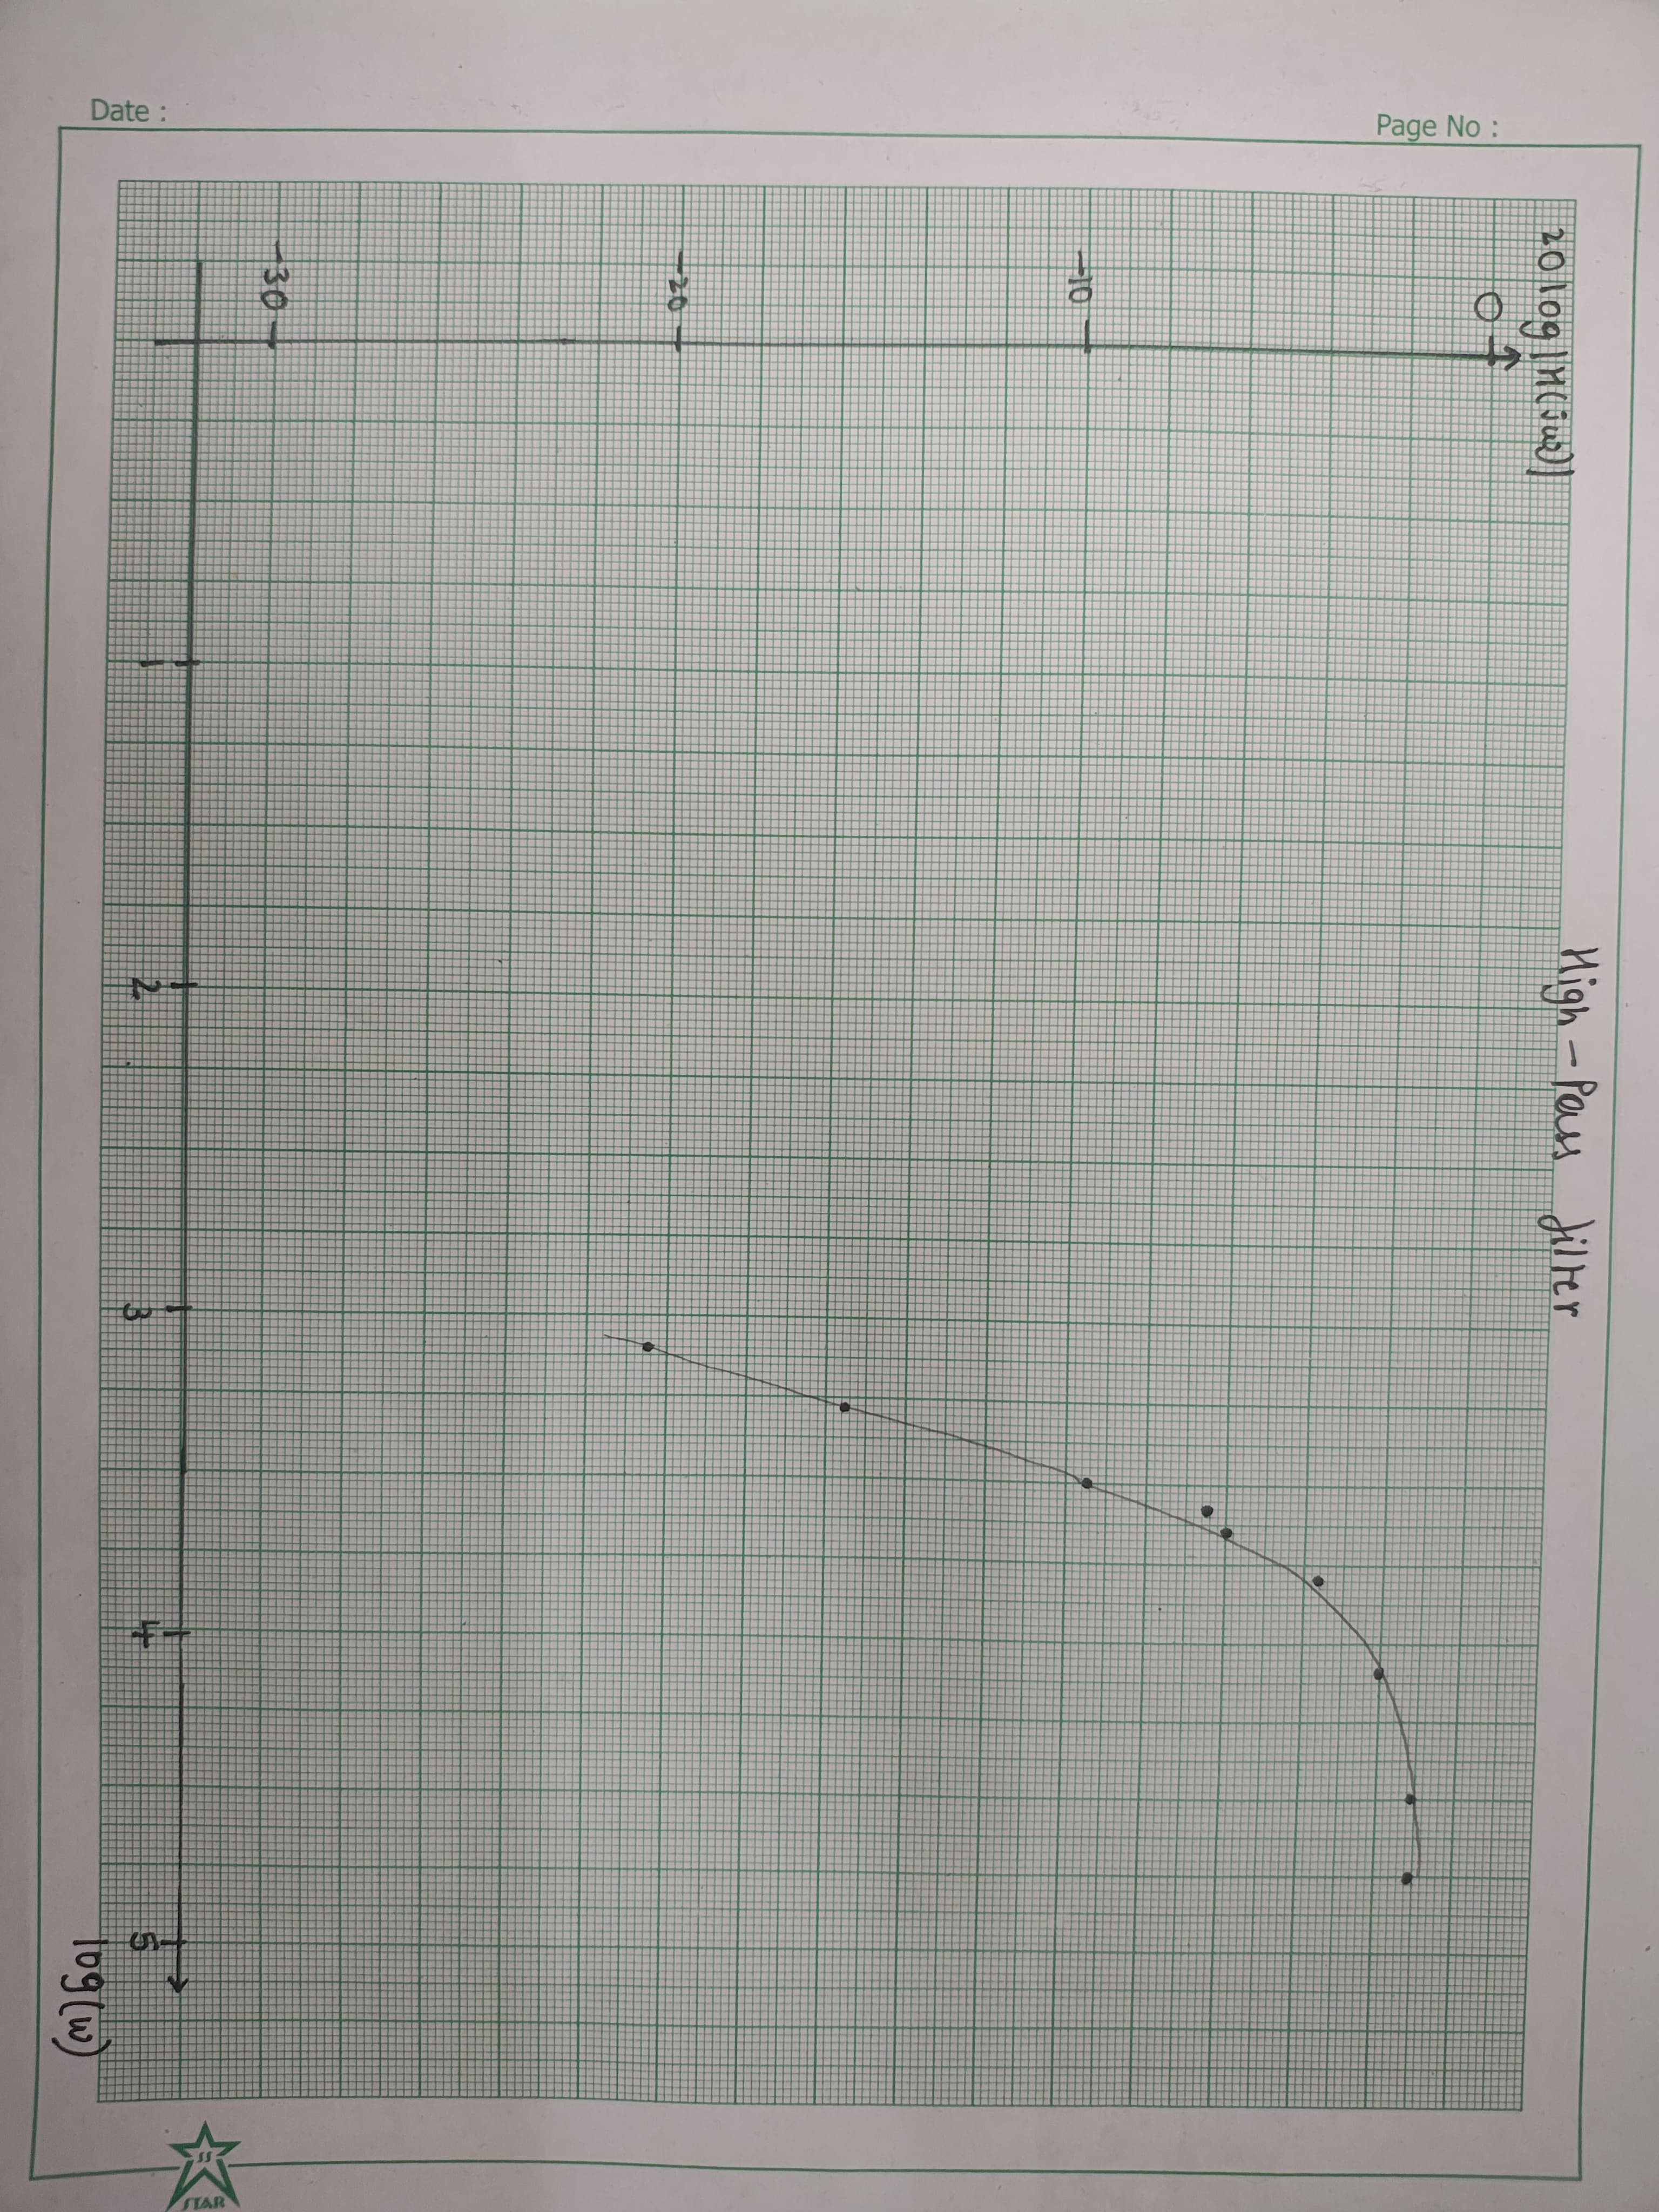 Date :
Page No :
High-Pass filter
20log|H(jw)|
0
-10
-20
-30
1
2
3
4
5
log(w)
SS
STAR